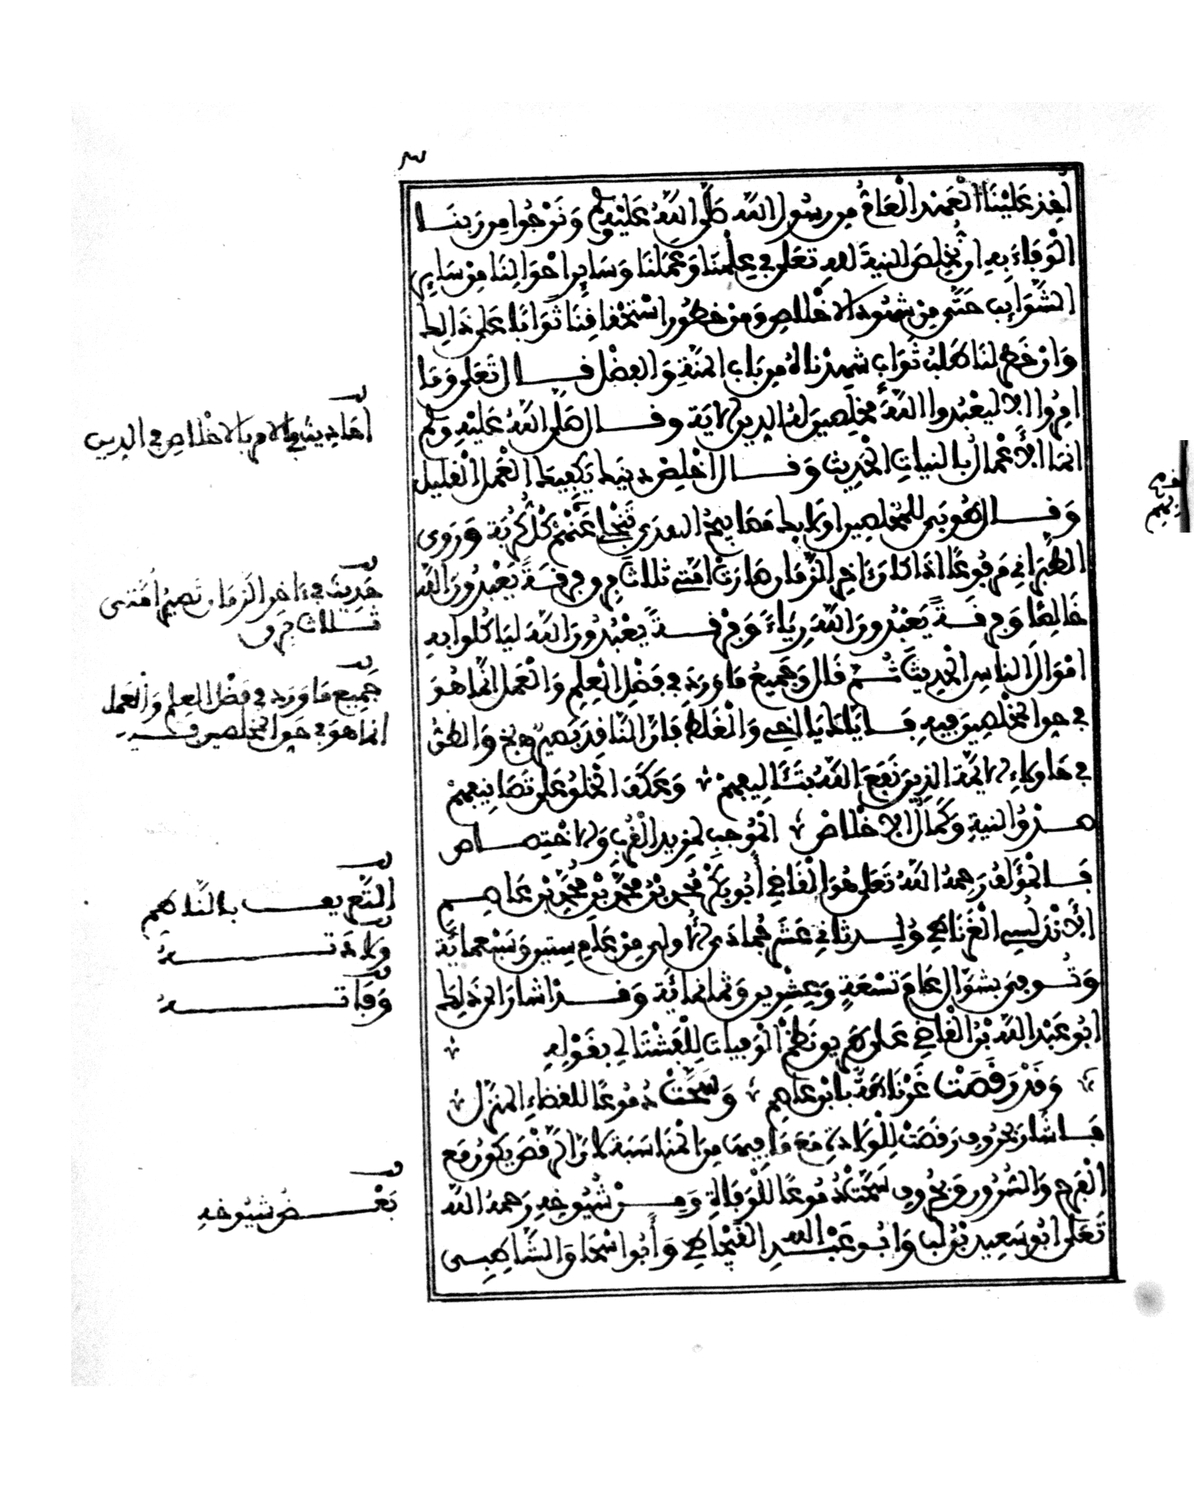 ٣
أخذ علينا العهد العام من رسول الله صلى الله عليه وسلم ونرجوا من ربنا
الوفاء به ان نخلص النية لله تعلى في علمنا وعملنا وساير احوالنا من ساير
الشوايب حتى من شهود الاخلاص ومن خطور استحقاقنا ثوابا على ذالك
وان خطر لنا طلب ثواب شهدناه من باب المنة والفضل فال تعلى وما
امروا الا ليعبدوا الله مخلصين له الدين الاية وفال صلى الله عليه وسلم
انما الاعمال بالنيات الحديث وفال اخلص دينك يكفيك العمل الفليل
وفال طوبى للمخلصين اولايك مصابيح الهدى تنجلي عنهم كل كربة وروى
الطبراني مرفوعا اذا كان ءاخر الزمان صارت امتي ثلاث فرق فرفة يعبدون الله
خالصا وفرفة يعبدون الله رياء وفرفة يعبدون الله لياكلوا به
اموال الناس الحديث ثم فال وجميع ما ورد في فضل العلم والعمل انما هو
في حق المخلصين فيه فاياك يا اخي والغلط فان النافد بصير هـ والظن
في هاولاء الايمة الذين نفع الله بتئاليفهم وعكف الخلق على تصانيفهم
هذه النية وكمال الاخلاص الموجب لمزيد القرب والاختصاص
فالمؤلف رحمه الله تعلى هو الفاضي أبو بكر محمد بن محمد بن محمد بن عاصم
الاندلسي الغرناطي ولد ثاني عشر جمادى الاولى من عام ستين وسبعماية
وتوفي بشوال عام تسعة وعشرين وثمانماية وفد اشار الى ذلك
ابو عبد الله بن الفاضي على طريق نظم الوفيات للفشتالي بفوله
وفد رفصت غرناطة بابن عاصم وسحت دموعا للفضاء المنزل
فاشار بحروف رفصت للولادة مع ما فيها من المناسبة لان الرفص يكون مع
الفرح والسرور وبحروف سحت دموعا للوفاة ومن شيوخه رحمه الله
تعلى ابو سعيد بن لب وابو عبد الله الفيجاطي وأبو اسحاق الشاطبي
احاديث في الامر بالاخلاص في الدين
حديث في ءاخر الزمان تصير أمتى
ثلاث فرق
جميع ما ورد في فضل العلم والعمل
انما هو في حق المخلصين فيه
التعريف بالناظم
ولادته
وفاته
بعض شيوخه